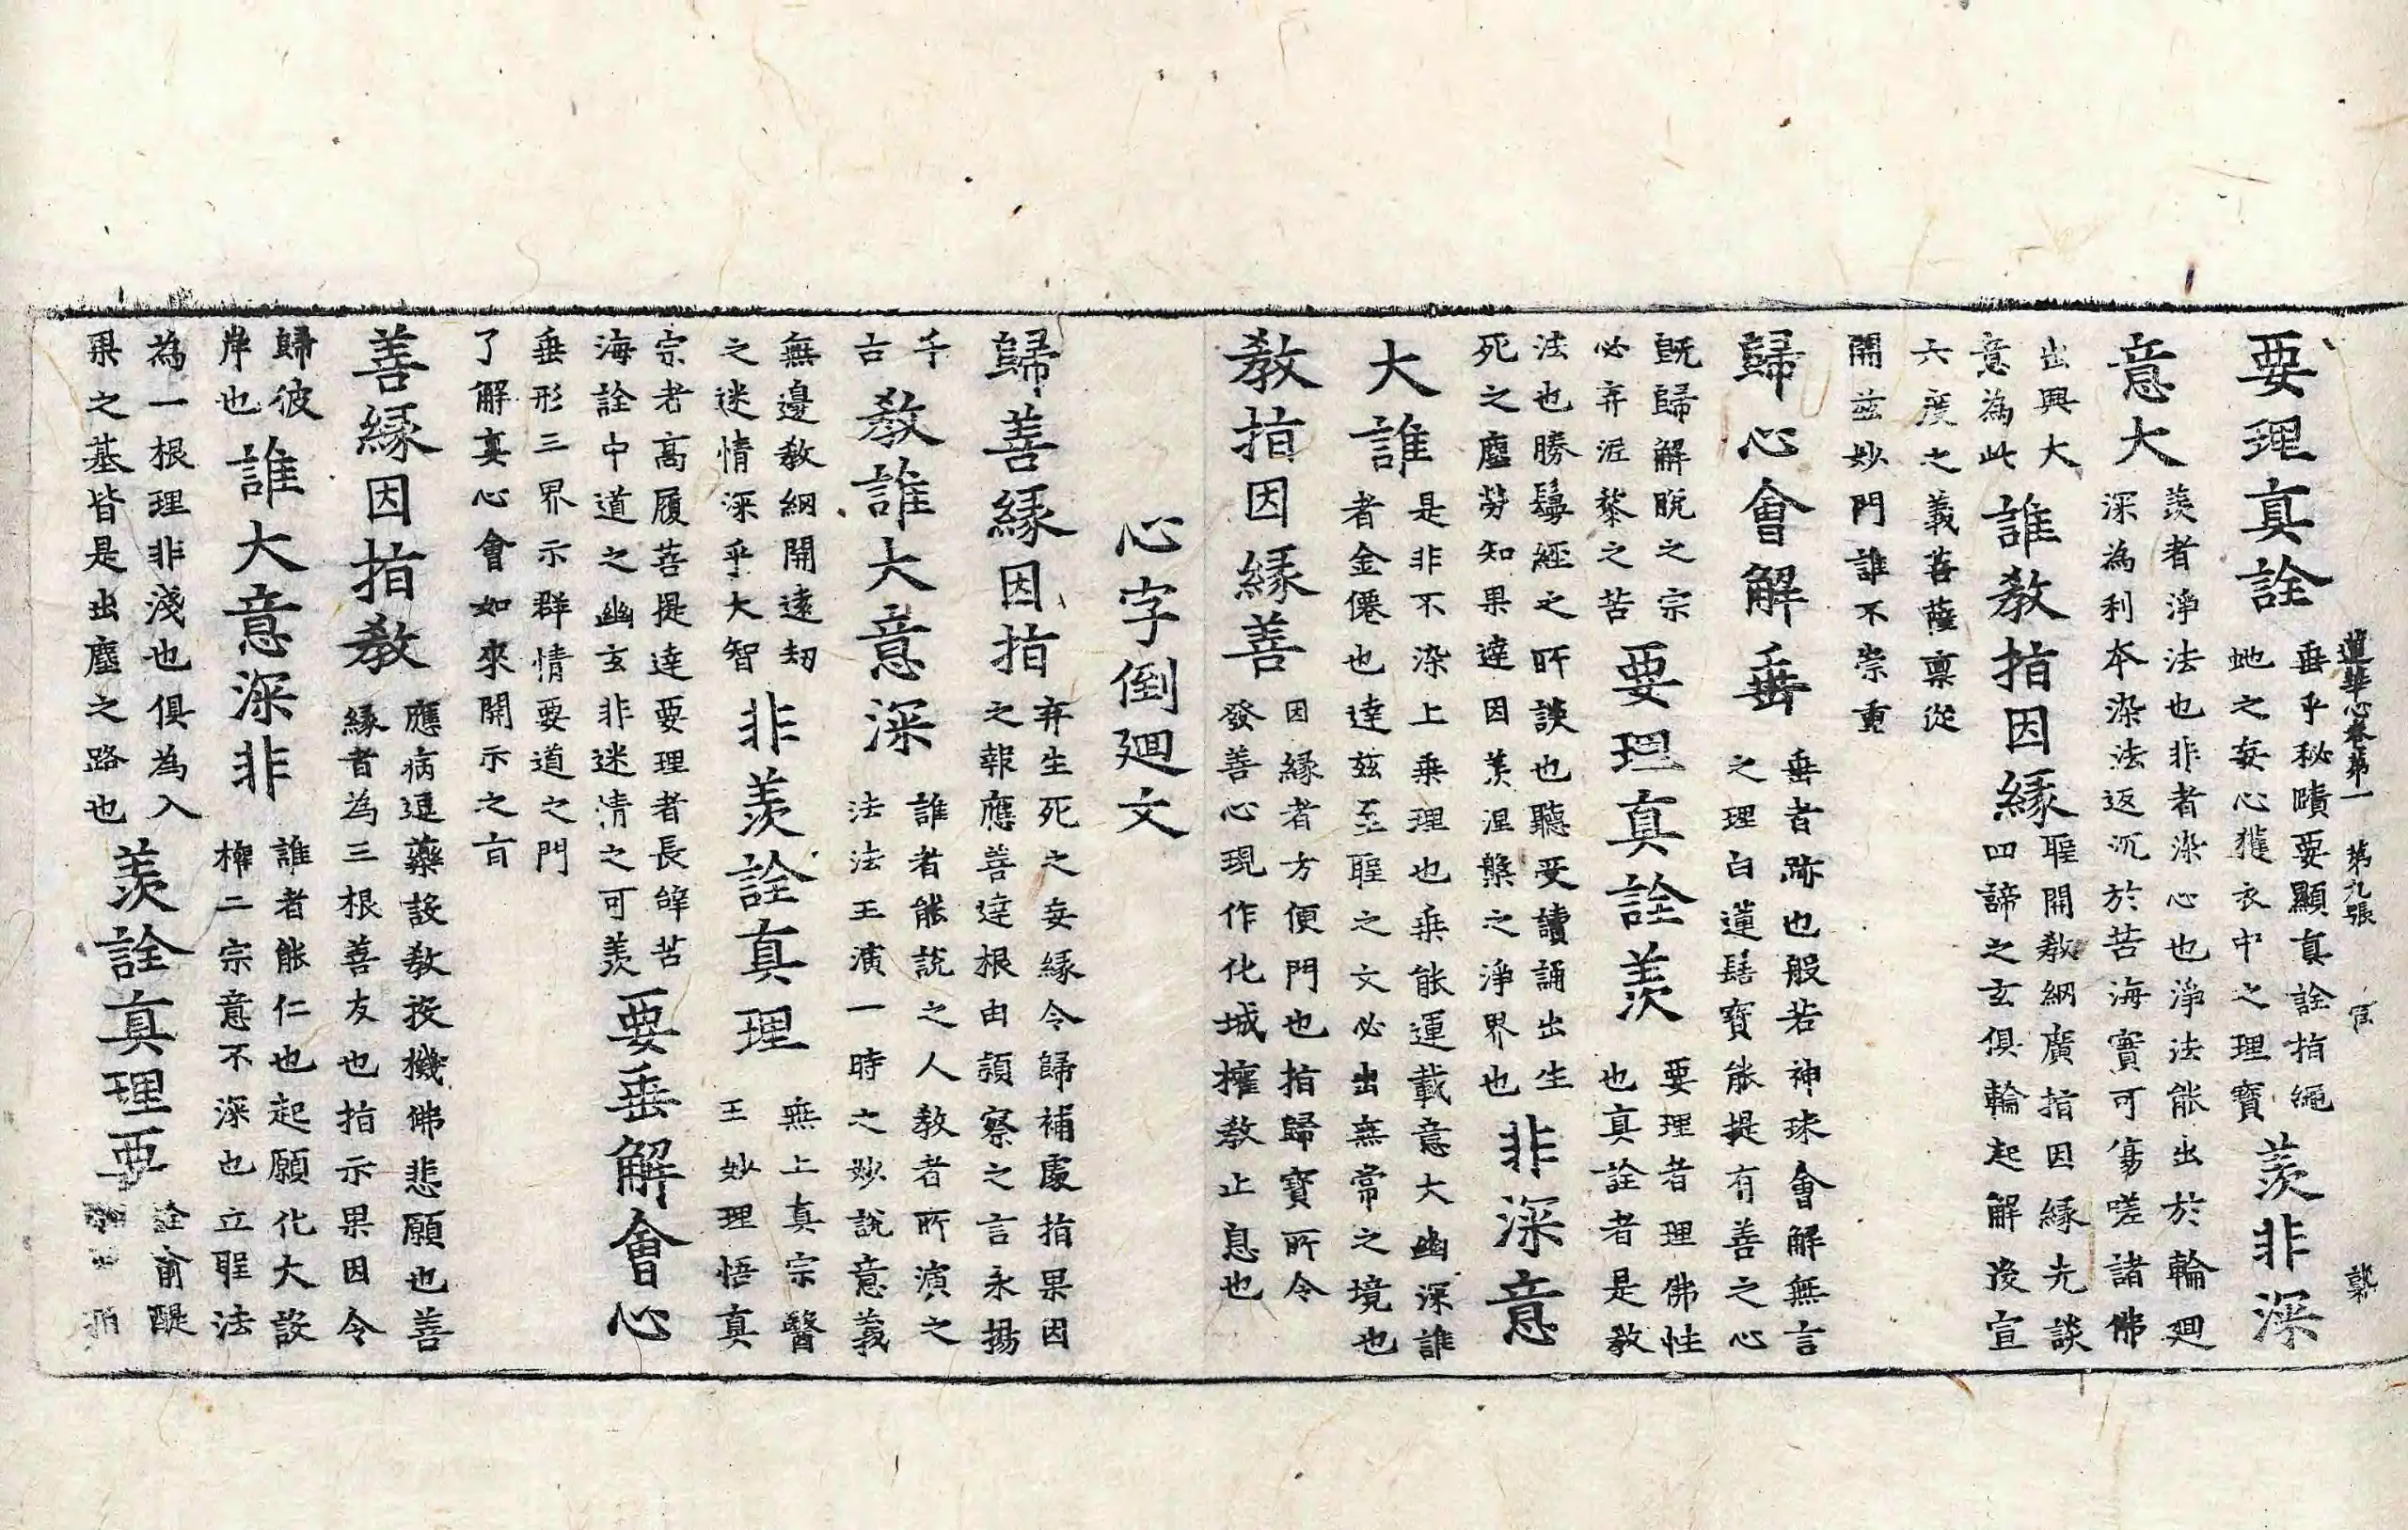 要理真詮垂乎秘賾要顯真詮指繩
地之妄心獲衣中之理寶羨非深
意大羨者淨法也非者染心也淨法能出於輪廻
深為利本染法返沉於苦海實可傷嗟諸佛
出興大
意為此誰教指因緣聖開教網廣指因緣先談
四諦之玄俱輪起解後宣
六度之義菩薩稟從
開茲妙門誰不崇重
歸心會解垂垂者跡也般若神珠會解無言
之理白蓮髻寶能提有善之心
既歸解脫之宗
必弃泥黎之苦要理真詮羨要理者理佛性
也真詮者是教
法也勝鬘經之所談也聽受讀誦出生
死之塵勞知果達因羨涅槃之淨界也非深意
大誰是非不染上乘理也乘能運載意大幽深誰
者金僊也達茲至聖之文必出無常之境也
教指因緣善因緣者方便門也指歸寶所令
發善心現作化城權教止息也
心字倒廻文
歸善緣因指弃生死之妄緣令歸補處指果因
之報應善達根由頭察之言永揚
千
古教誰大意深誰者能說之人教者所演之
法法王演一時之妙說意義
無邊教網開遠刼
之迷情深乎大智非羨詮真理無上真宗醫
王妙理悟真
宗者高履菩提達要理者長辭苦
海詮中道之幽玄非迷情之可羨要垂解會心
垂形三界示群情要道之門
了解真心會如來開示之旨
善緣因指教應病逗藥設教投機佛悲願也善
緣者為三根善友也指示果因令
歸彼
岸也誰大意深非誰者能仁也起願化大設
權二宗意不深也立聖法
為一根理非淺也俱為入
果之基皆是出塵之路也羨詮真理要詮俞醍
蓮華心卷第一 第九張 官 𤍠